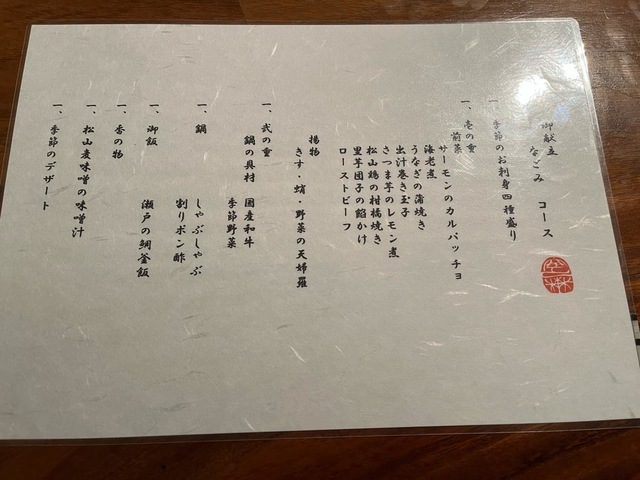 御献立
なごみ コース
一、季節のお刺身四種盛り
一、壱の重
前菜
サーモンのカルパッチョ
海老煮
うなぎの蒲焼き
出汁巻き玉子
さつま芋のレモン煮
松山鶏の柑橘焼き
里芋団子の餡かけ
ローストビーフ
揚物
きす・蛸・野菜の天婦羅
一、弐の重
鍋の具材 国産和牛
季節野菜
一、鍋 しゃぶしゃぶ
割りポン酢
一、御飯 瀬戸の鯛釜飯
一、香の物
一、松山麦味噌の味噌汁
一、季節のデザート